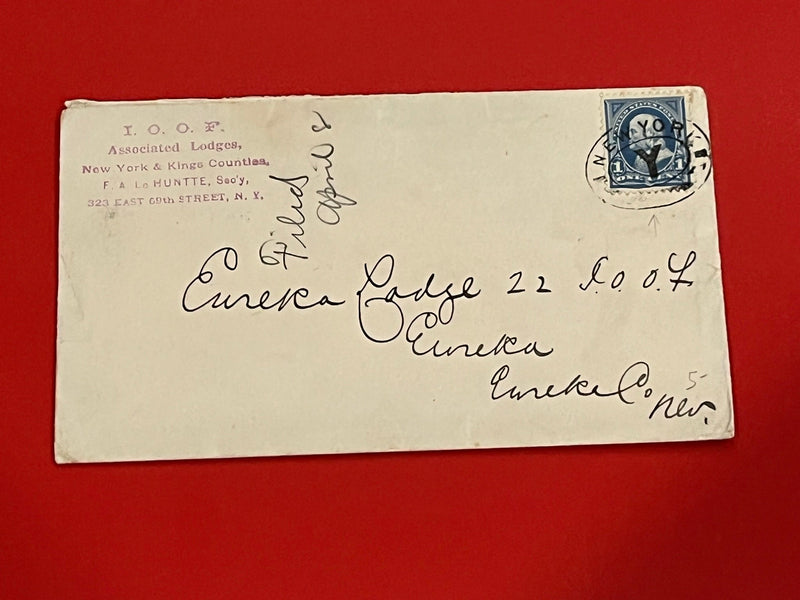 I. O. O. F.
Associated Lodges,
New York & Kings Counties,
F. A. Le HUNTTE, Sec'y,
323 EAST 69th STREET, N. Y.
Filed
April 8
NEW YORK
Y
1 1
ONE CENT
Eureka Lodge 22 I.O.O.F
Eureka
Eureka Co.
Nev.
5-